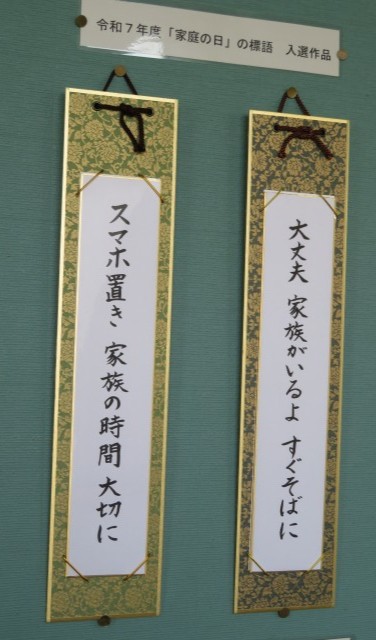 令和７年度「家庭の日」の標語　入選作品
大丈夫 家族がいるよ すぐそばに
スマホ置き 家族の時間 大切に